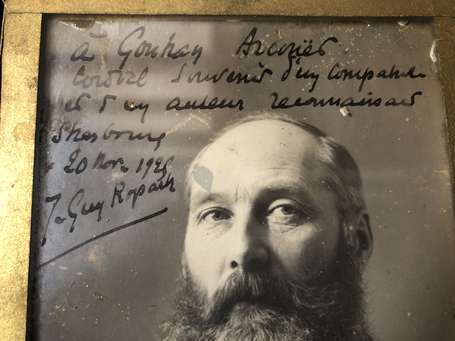 à
Cordial Souvenir d'un Compatriote
et d'un auteur reconnaissant
Strasbourg
20 Nov. 1925
J-Guy Ropartz